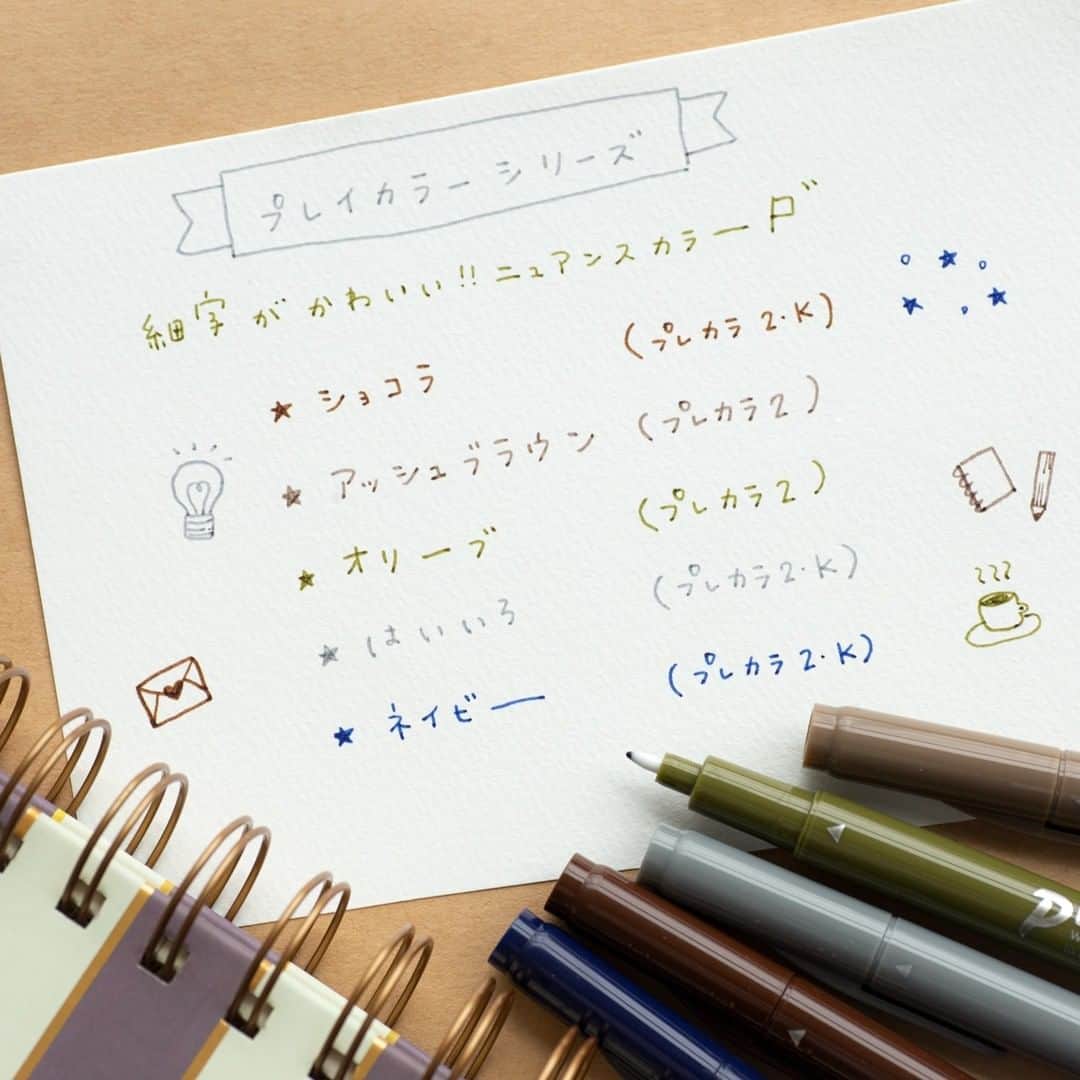 プレイカラーシリーズ
細字がかわいい!!ニュアンスカラー
★ ショコラ (プレカラ2・K)
★ アッシュブラウン (プレカラ2)
★ オリーブ (プレカラ2)
★ はいいろ (プレカラ2・K)
★ ネイビー (プレカラ2・K)